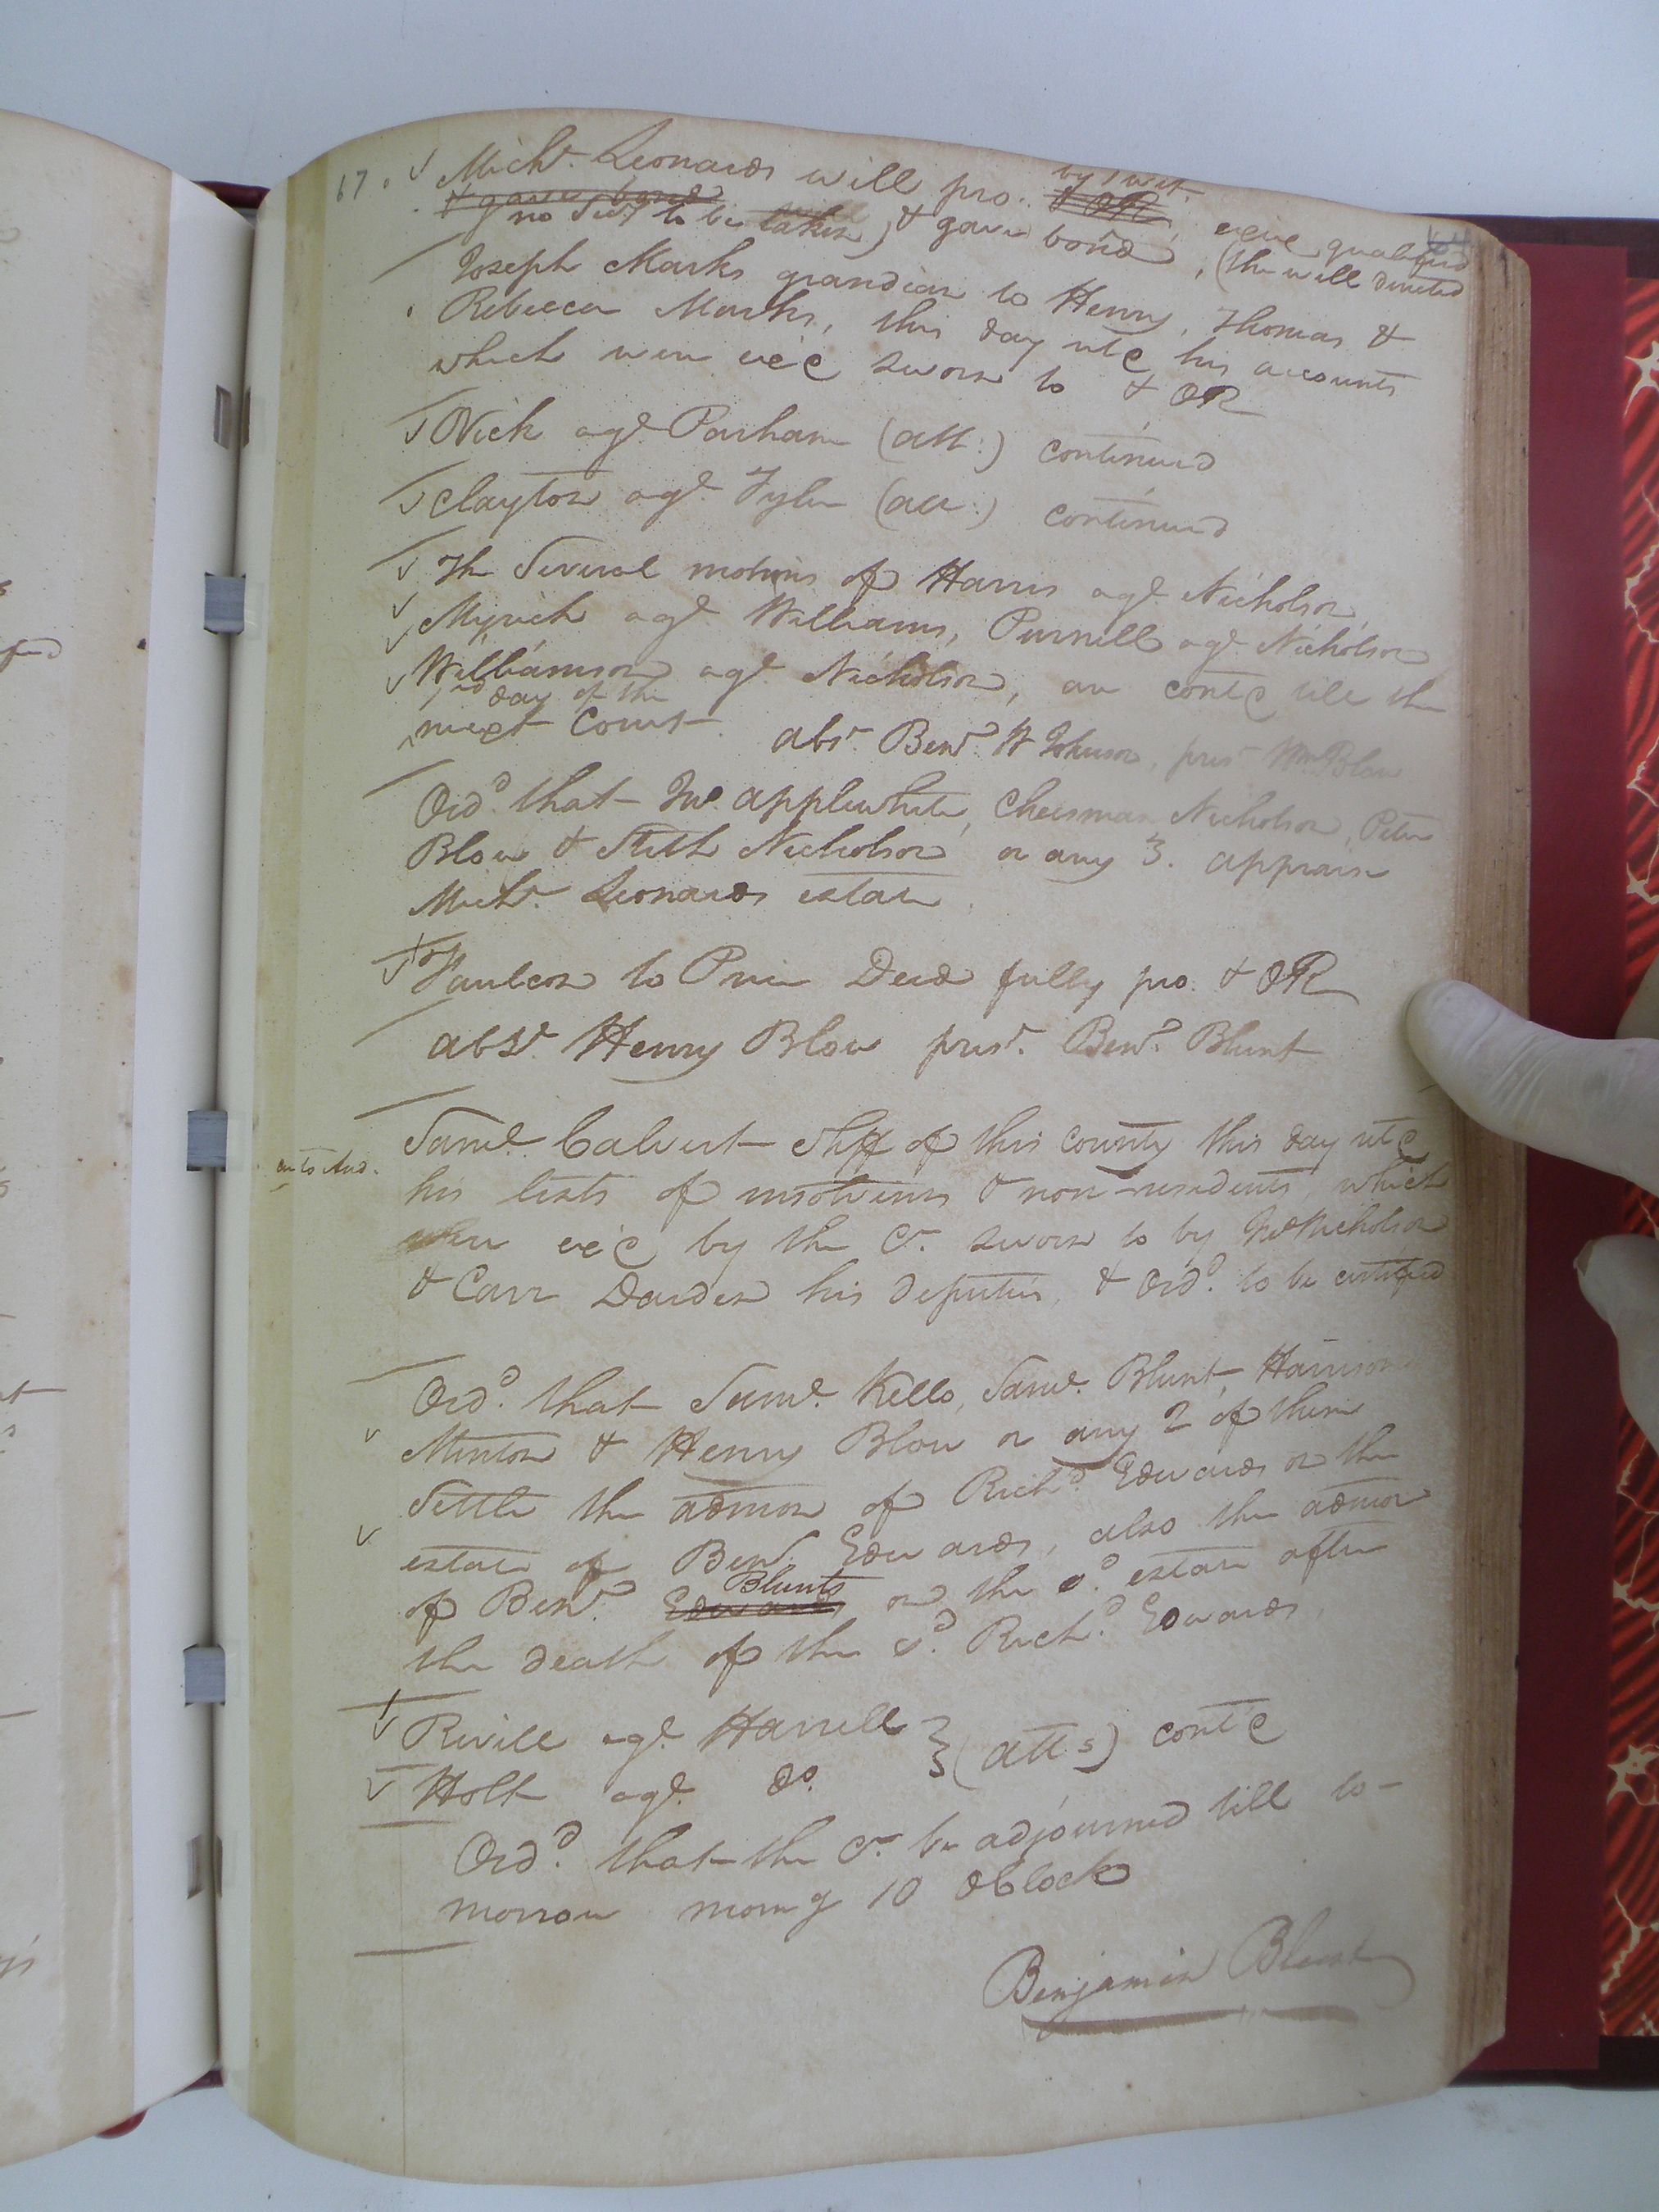 67.
Michl. Leonards will pro. by 1 wit. & OR, exve qualified
& gave bond
no Secy to be taken) & gave bond, (the will directed
Joseph Marks guardian to Henry, Thomas &
Rebecca Marks, this day retd his accounts
which were recd sworn to & OR
Vick agt Parham (att:) continued
Clayton agt Tyler (att:) continued
The Several motions of Harris agt Nicholson,
Myrick agt Williams, Purnell agt Nicholson
Williamson agt Nicholson, are contd till the
day of the
next Court. abst. Benj. W Johnson, prest Wm Blow
Ord. that Jno. applewhite, Cheesman Nicholson, Peter
Blow & Stith Nicholson or any 3. appraise
Michl. Leonards estate.
to Price Deed fully pro. & OR
abst. Henry Blow prest. Benj. Blunt
Saml. Calvert shff of this County this day retd
his lists of insolvents & non-residents, which
were recd by the Ct. sworn to by Jno Nicholson
& Carr Darden his deputies, & Ord. to be certified
Ord. that Saml. Kello, Saml. Blunt, Harrison
Minton & Henry Blow or any 2 of them
Settle the admon of Richd. Edwards on the
estate of Benj. Edwards, also the admon
of Benj. Edwards Blunts on the sd. estate after
the death of the sd. Richd. Edwards.
Revill agt. Harrell } (atts) contd
Holt agt. do.
Ord. that the Ct. be adjourned till to-
morrow morng 10 oClock
Benjamin Blunt